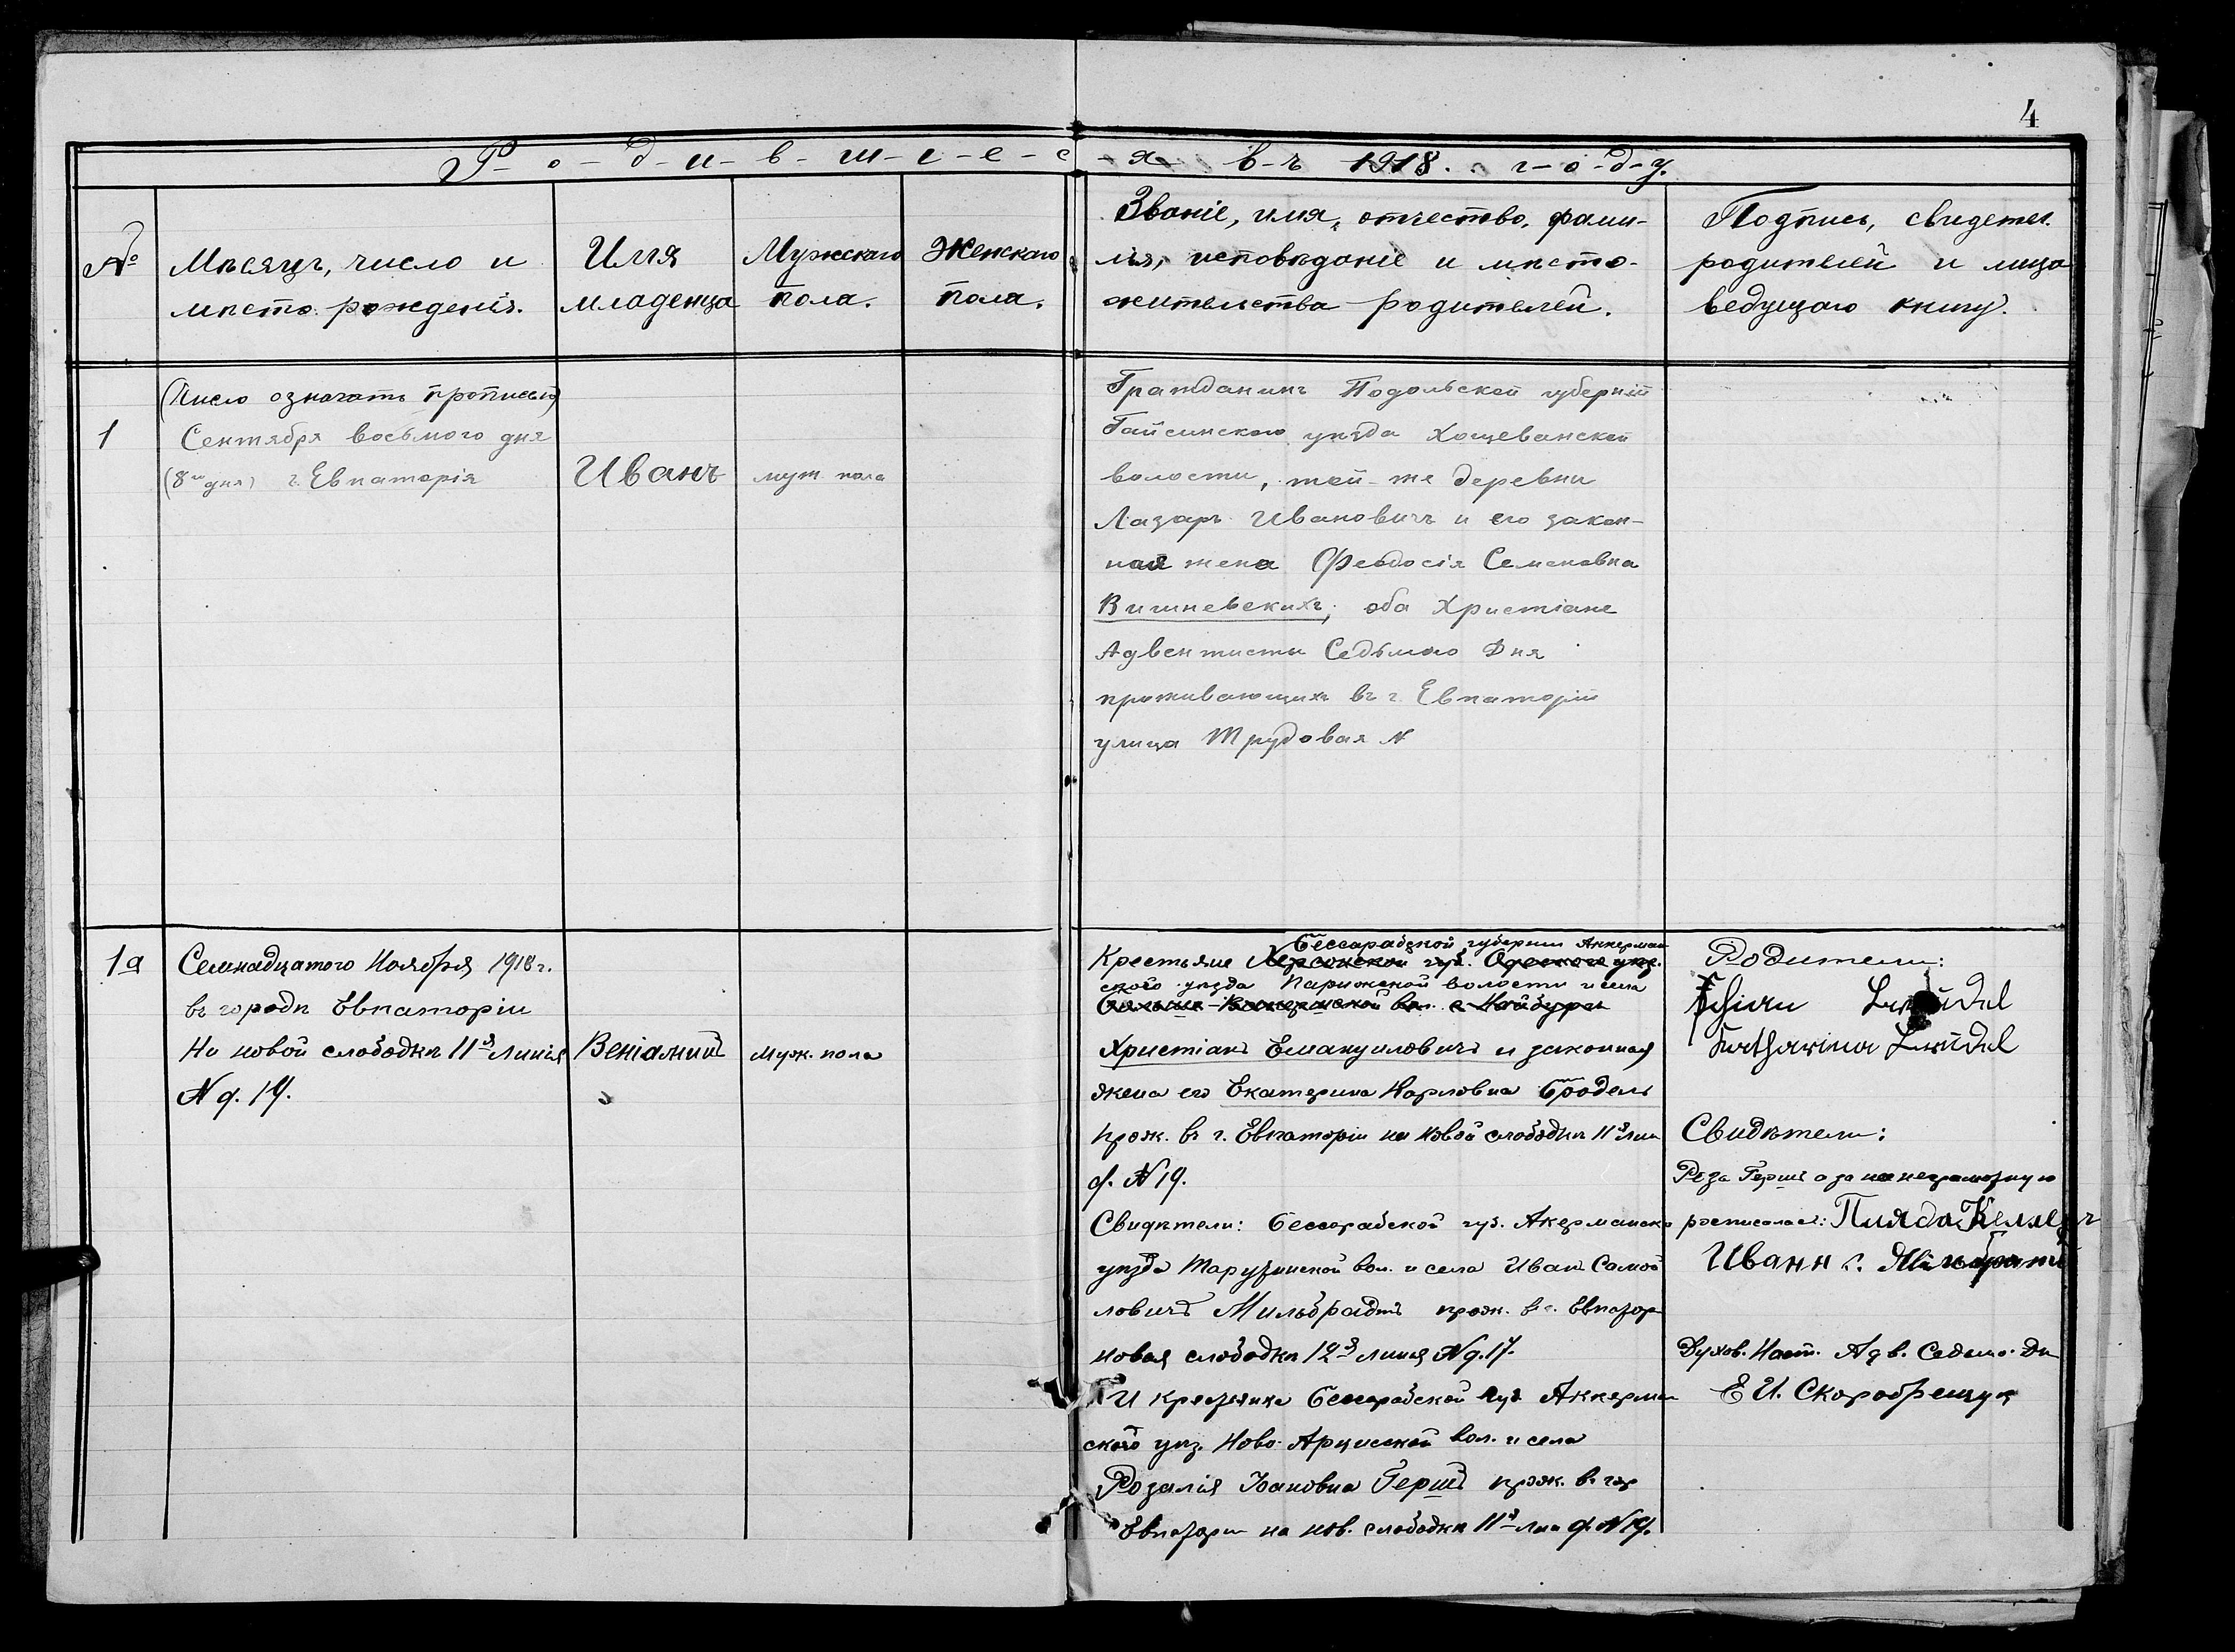 4
Р-о-д-и-в-ш-і-е-с-я въ 1918. г-о-д-у.
№
Мѣсяцъ, число и
мѣсто рожденія.
Имя
младенца
Мужскаго
пола.
Женскаго
пола.
Званіе, имя, отчество, фами-
лія, исповѣданіе и мѣсто-
жительства родителей.
Подпись, свидетел.
родителей и лица
ведущаго книгу.
1
(Число означать прописью)
Сентября восьмого дня
(8го дня) г. Евпаторія
Иванъ
муж. пола
Гражданинъ Подольской губерніи
Гайсинскаго уѣзда Хощеванской
волости, той-же деревни
Лазарь Ивановичъ и его закон-
ная жена Феодосія Семеновна
Вишневскихъ, оба Христіане
Адвентисты Седьмаго Дня
проживающихъ въ г. Евпаторіи
улица Трудовая №
1а
Семнадцатого Ноября 1918 г.
въ городѣ Евпаторіи
На новой слободкѣ 11я линія
№ д. 19.
Веніаминъ
муж. пола
Бессарабской губерніи Аккерман
Крестьяне Херсонской губ. Одескаго уѣз.
скаго уѣзда Парижской волости и села
Христіанъ Емануиловичъ и законная
жена его Екатерина Карловна Бродель
прож. въ г. Евпаторіи на новой слободкѣ 11я лин
д. № 19.
Свидѣтели: Бессарабской губ. Акерманска
уѣзда Тарутинской вол. и села Иванъ Самой
ловичъ Мильбрадтъ прож. в г. Евпатор
новая слободкѣ 12я линія № д. 17.
И крестьянка Бессарабской губ. Аккерман
скаго уѣз. Ново-Арцисской вол. и села
Розалія Ивановна Гершъ прож. в. гор
Евпатори на нов. слободкѣ 11я лин д. № 19.
Родители:
Katharina
Свидѣтели:
Роза Гершъ а за нее неграмотную
росписалась:
Иванъ С. Мильбратъ
Духов. Наст. Адв. Седьмо. Дн
Е И. Скоробрещук